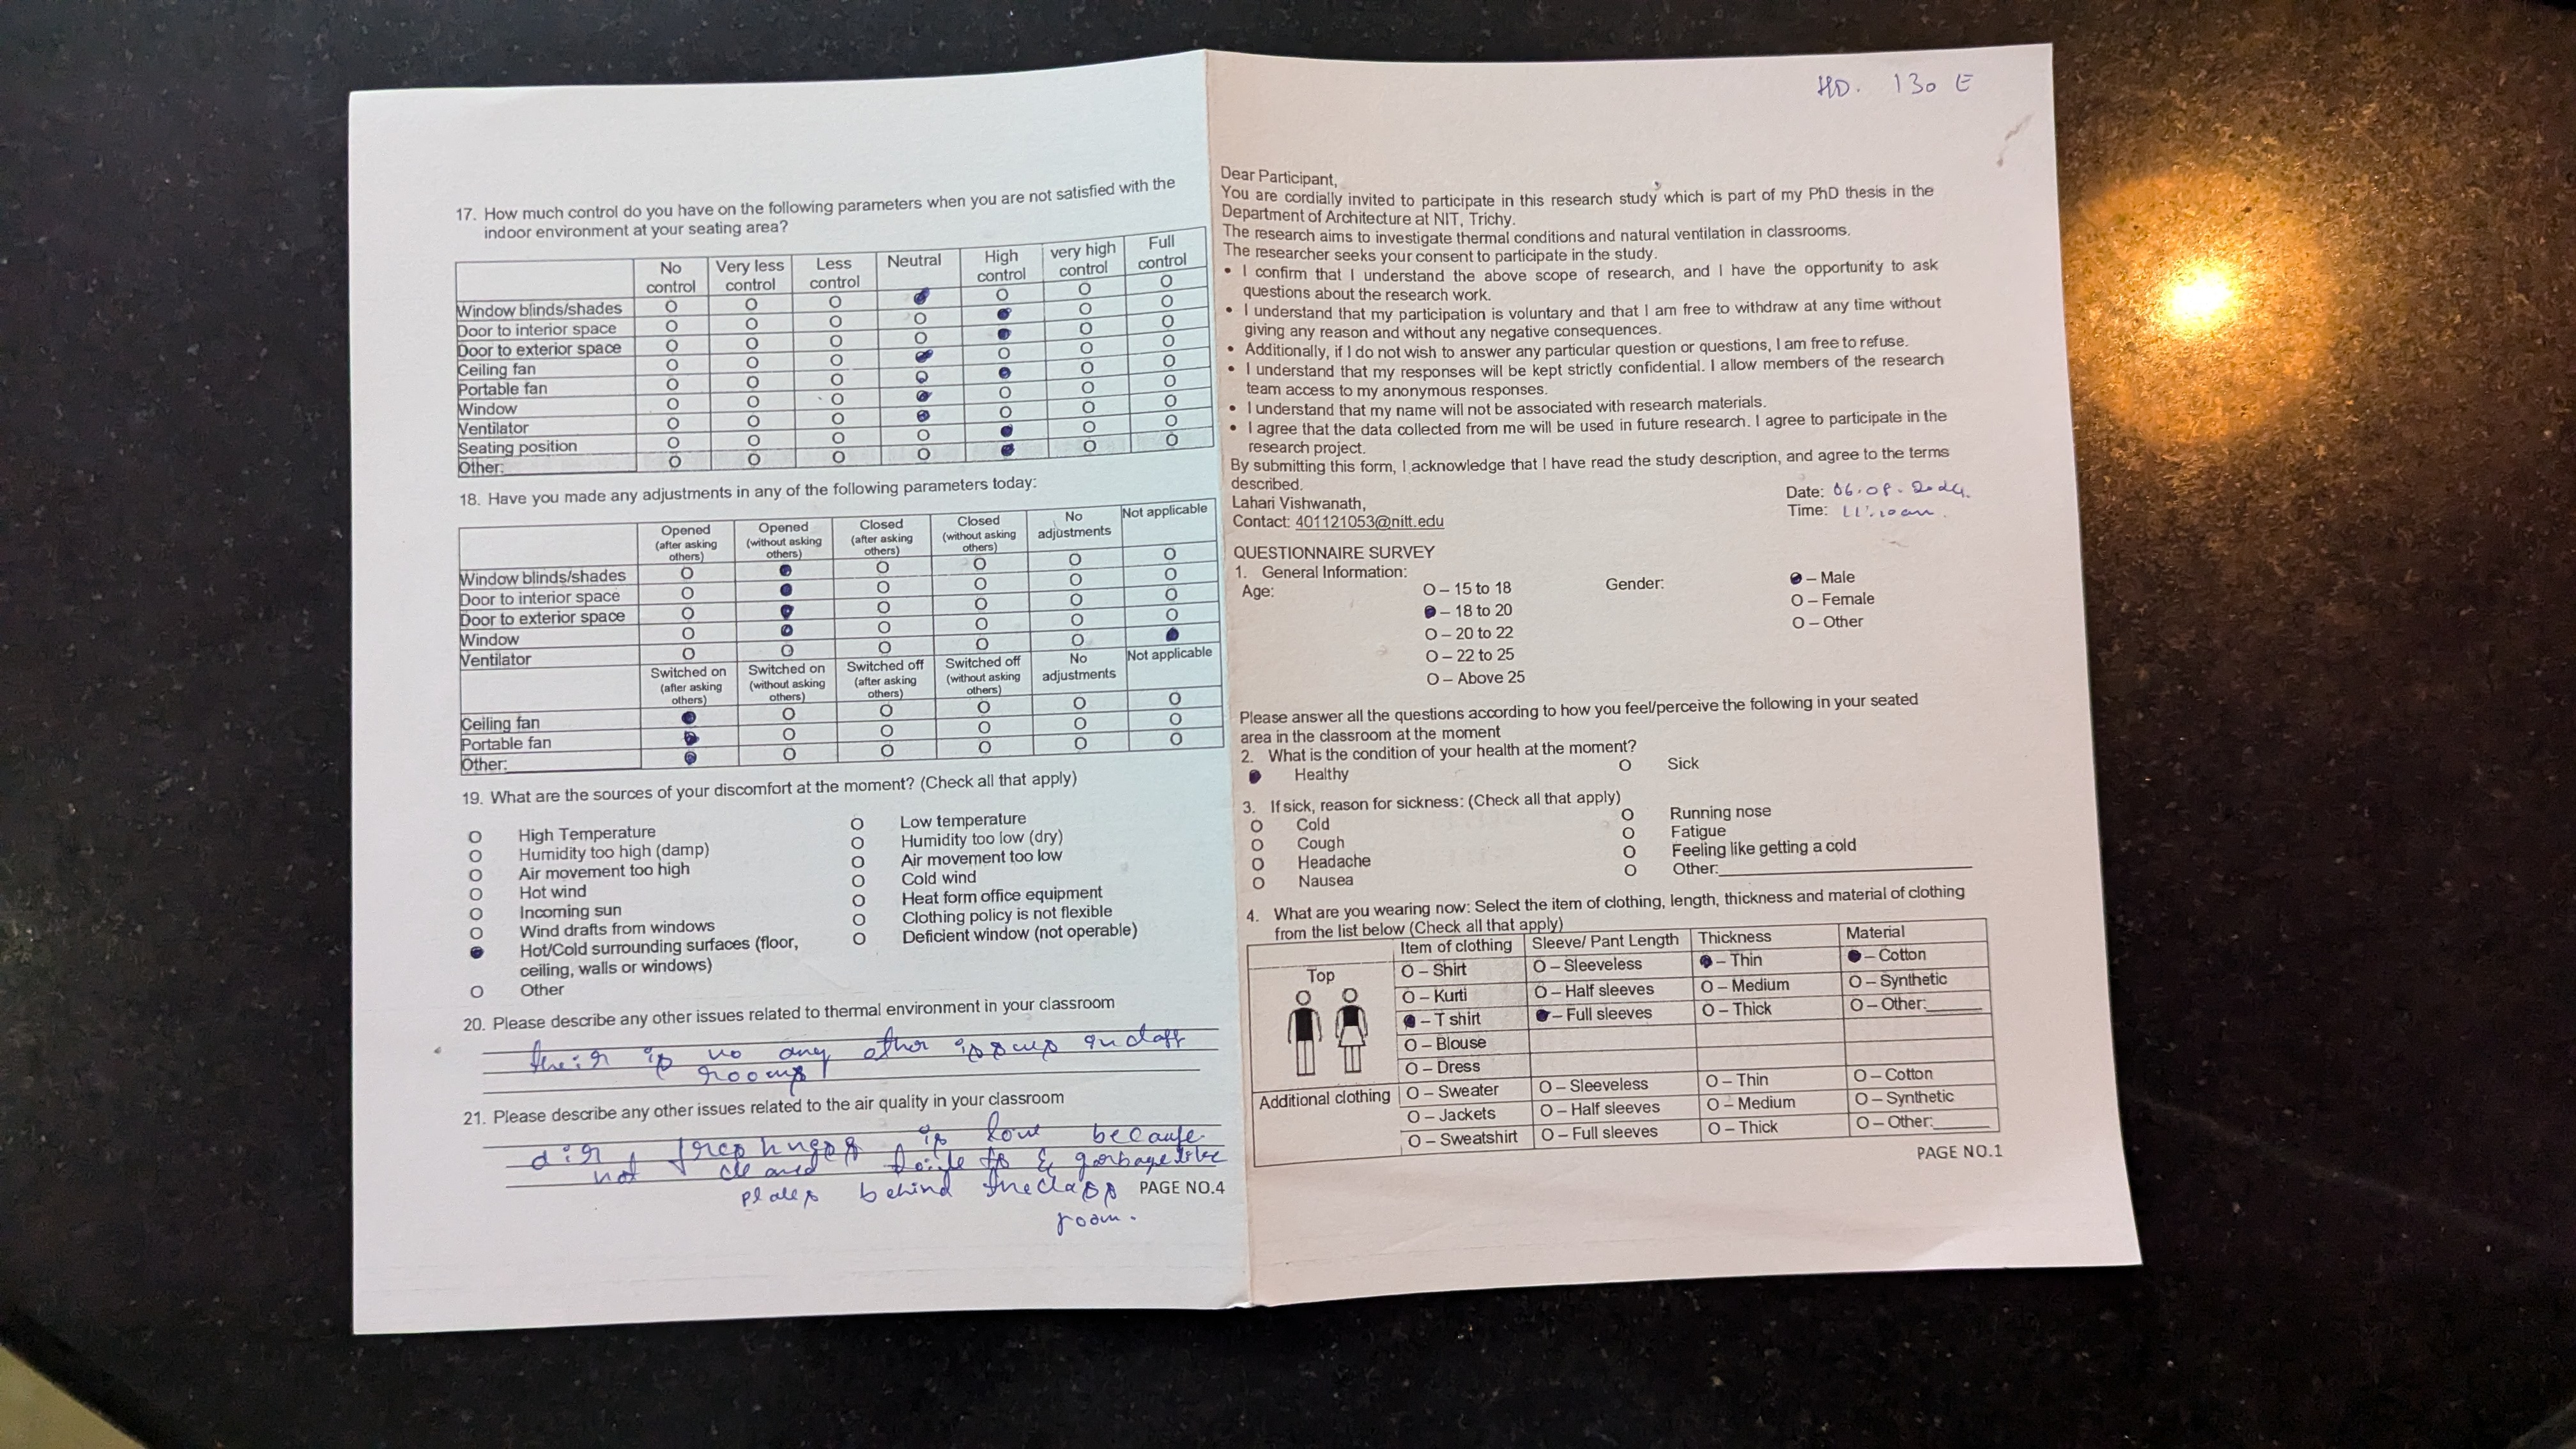 17. How much control do you have on the following parameters when you are not satisfied with the
indoor environment at your seating area?
No control Very less control Less control Neutral High control very high control Full control
Window blinds/shades O O O O O O
Door to interior space O O O O O O
Door to exterior space O O O O O O
Ceiling fan O O O O O O
Portable fan O O O O O O
Window O O O O O O
Ventilator O O O O O O
Seating position O O O O O O
Other: O O O O O O
18. Have you made any adjustments in any of the following parameters today:
Opened (after asking others) Opened (without asking others) Closed (after asking others) Closed (without asking others) No adjustments Not applicable
Window blinds/shades O O O O O
Door to interior space O O O O O
Door to exterior space O O O O O
Window O O O O O
Ventilator O O O O O
Switched on (after asking others) Switched on (without asking others) Switched off (after asking others) Switched off (without asking others) No adjustments Not applicable
Ceiling fan O O O O O
Portable fan O O O O O
Other: O O O O O
19. What are the sources of your discomfort at the moment? (Check all that apply)
O High Temperature
O Humidity too high (damp)
O Air movement too high
O Hot wind
O Incoming sun
O Wind drafts from windows
● Hot/Cold surrounding surfaces (floor,
ceiling, walls or windows)
O Other
O Low temperature
O Humidity too low (dry)
O Air movement too low
O Cold wind
O Heat form office equipment
O Clothing policy is not flexible
O Deficient window (not operable)
20. Please describe any other issues related to thermal environment in your classroom
their is no any other issues in class
rooms
21. Please describe any other issues related to the air quality in your classroom
air is low because
not cleaned & garbage like
places behind the class
room.
PAGE NO.4
HD. 130 E
Dear Participant,
You are cordially invited to participate in this research study which is part of my PhD thesis in the
Department of Architecture at NIT, Trichy.
The research aims to investigate thermal conditions and natural ventilation in classrooms.
The researcher seeks your consent to participate in the study.
• I confirm that I understand the above scope of research, and I have the opportunity to ask
questions about the research work.
• I understand that my participation is voluntary and that I am free to withdraw at any time without
giving any reason and without any negative consequences.
• Additionally, if I do not wish to answer any particular question or questions, I am free to refuse.
• I understand that my responses will be kept strictly confidential. I allow members of the research
team access to my anonymous responses.
• I understand that my name will not be associated with research materials.
• I agree that the data collected from me will be used in future research. I agree to participate in the
research project.
By submitting this form, I acknowledge that I have read the study description, and agree to the terms
described.
Lahari Vishwanath,
Contact: 401121053@nitt.edu
Date: 06.08.2024.
Time: 11:10am.
QUESTIONNAIRE SURVEY
1. General Information:
Age:
O – 15 to 18
● – 18 to 20
O – 20 to 22
O – 22 to 25
O – Above 25
Gender:
● – Male
O – Female
O – Other
Please answer all the questions according to how you feel/perceive the following in your seated
area in the classroom at the moment
2. What is the condition of your health at the moment?
● Healthy O Sick
3. If sick, reason for sickness: (Check all that apply)
O Cold O Running nose
O Cough O Fatigue
O Headache O Feeling like getting a cold
O Nausea O Other:
4. What are you wearing now: Select the item of clothing, length, thickness and material of clothing
from the list below (Check all that apply)
Item of clothing Sleeve/ Pant Length Thickness Material
Top
O – Shirt O – Sleeveless ● – Thin ● – Cotton
O – Kurti O – Half sleeves O – Medium O – Synthetic
● – T shirt ● – Full sleeves O – Thick O – Other:
O – Blouse
O – Dress
Additional clothing O – Sweater O – Sleeveless O – Thin O – Cotton
O – Jackets O – Half sleeves O – Medium O – Synthetic
O – Sweatshirt O – Full sleeves O – Thick O – Other:
PAGE NO.1